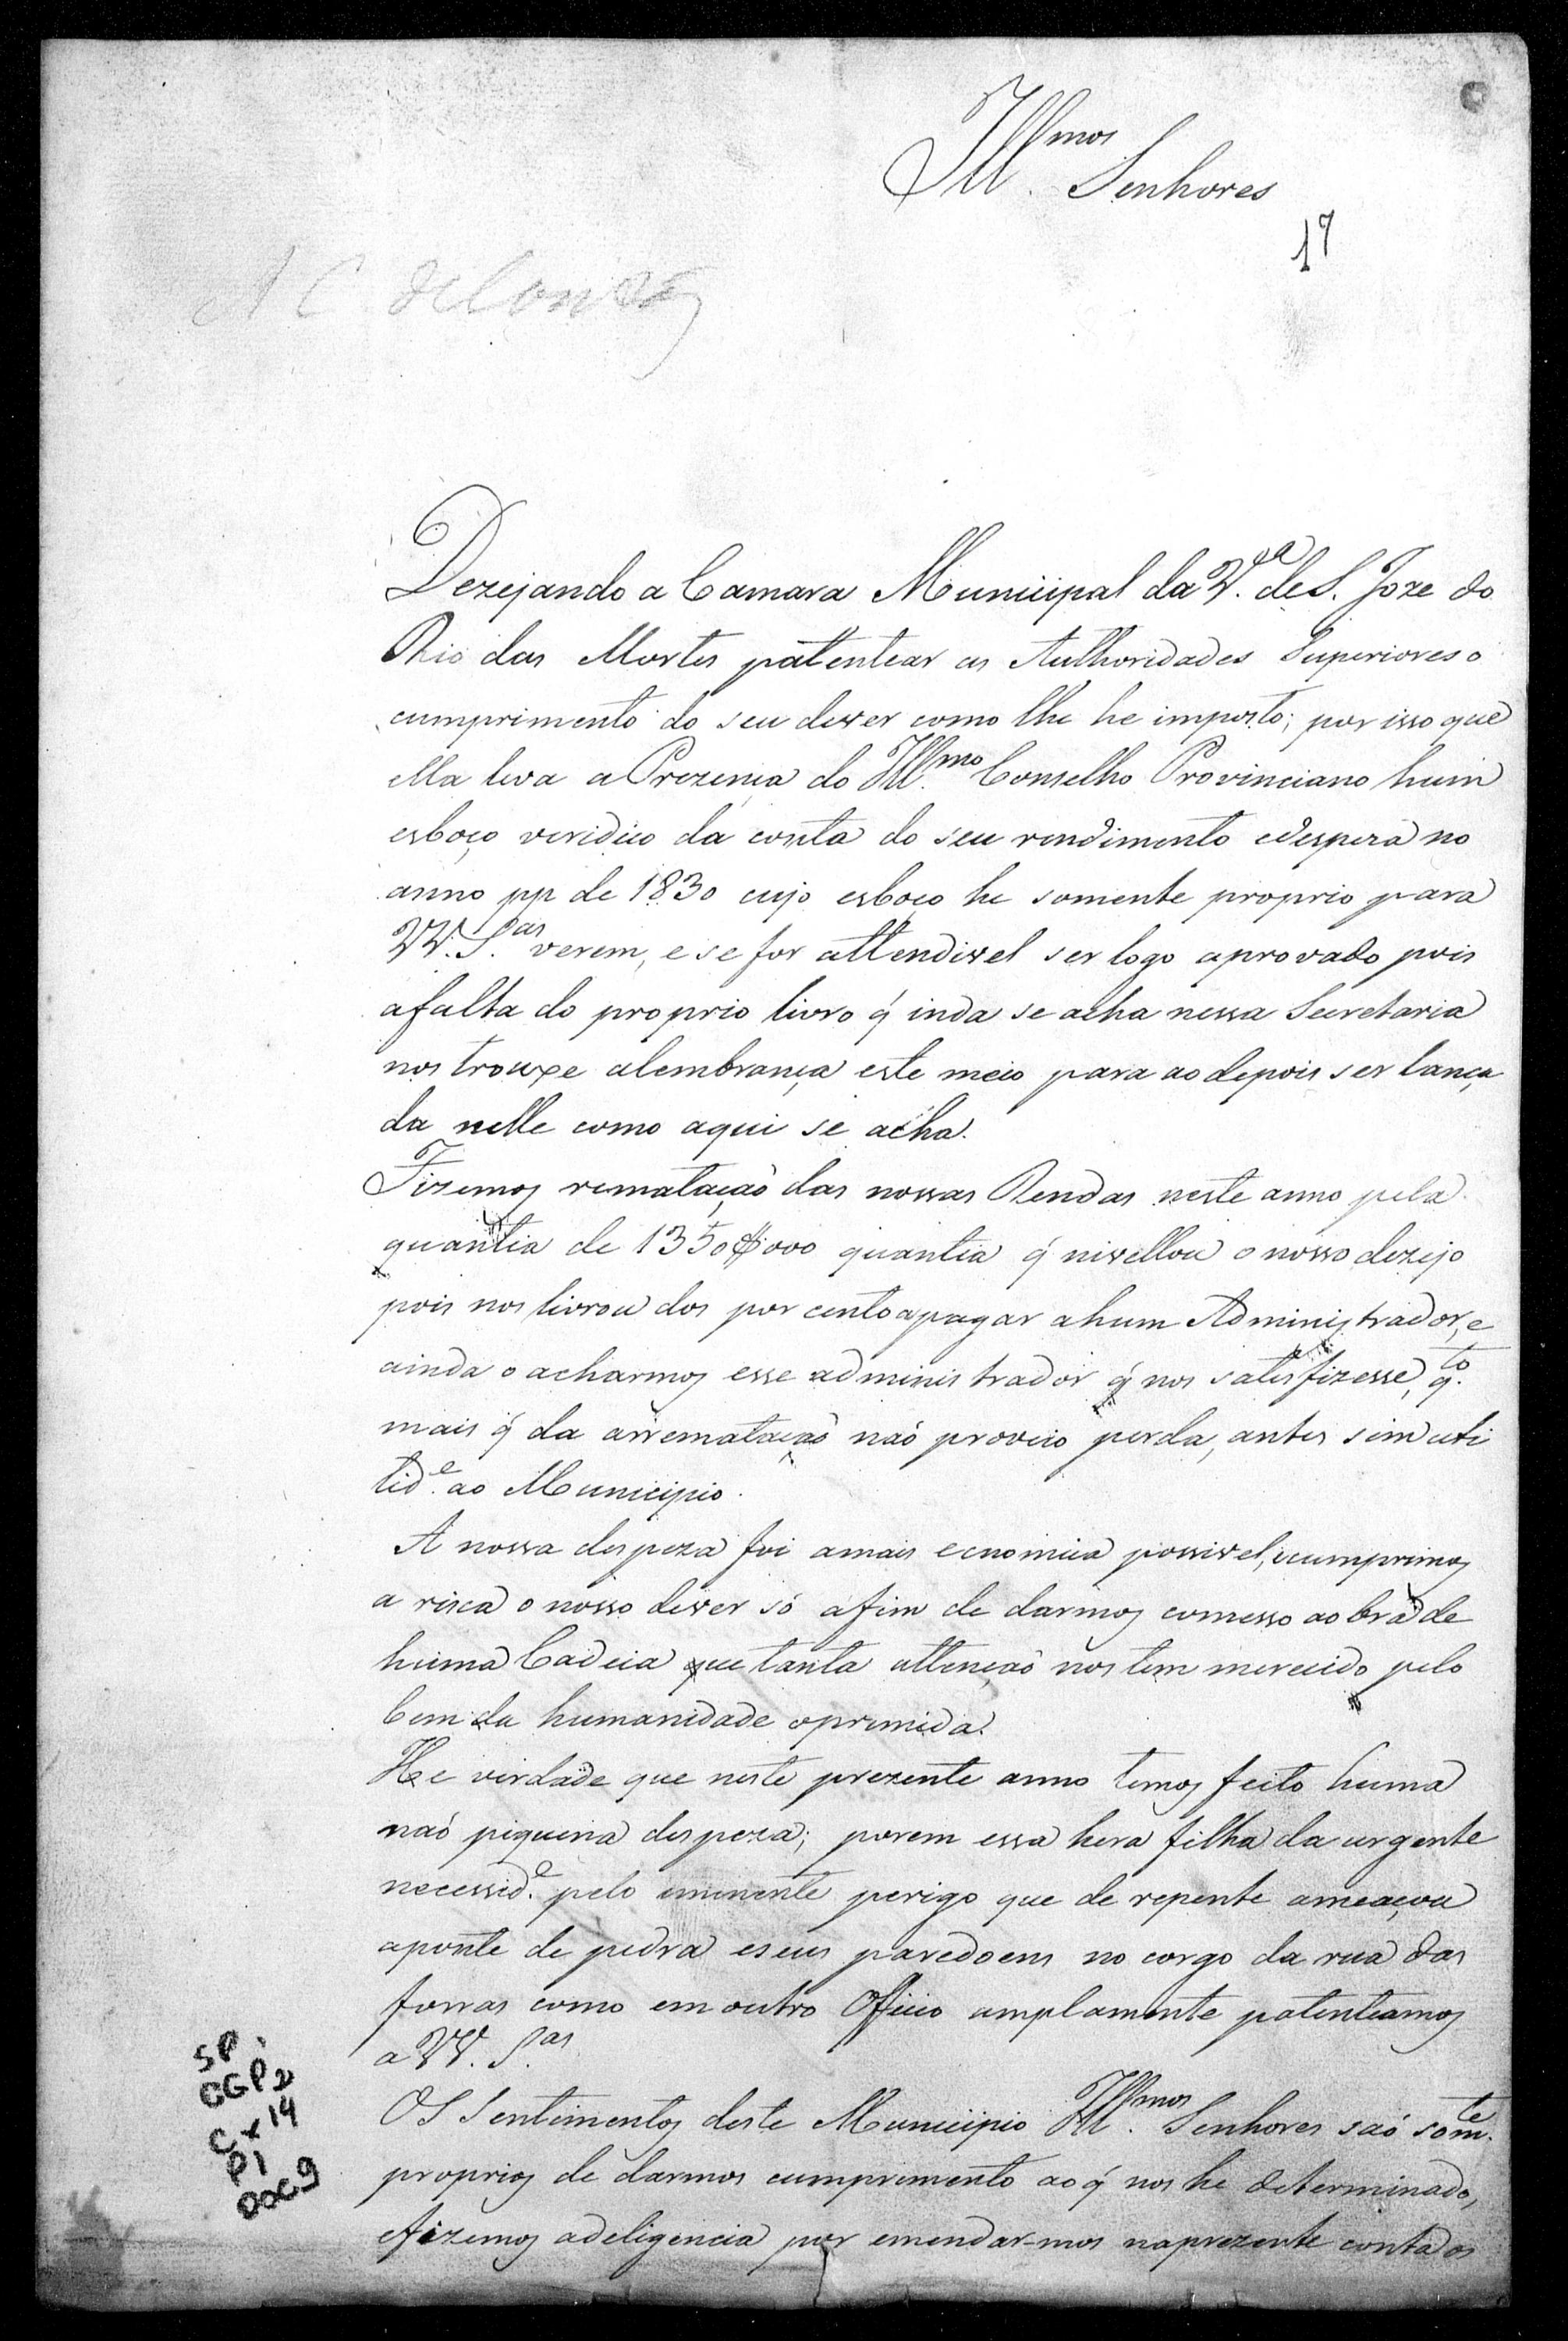 Ill.mos Senhores
17
A C. de Contas
Dezejando a Camara Municipal da V.a de S. Joze do
Rio das Mortes patentear as Authoridades Superiores o
cumprimento do seu dever como lhe he imposto; por isso que
ella leva a Prezença do Ill.mo Conselho Provinciano hum
esboço veridico da conta do seu rendimento edespeza no
anno pp de 1830 cujo esboço he somente proprio para
VV. S.as verem, e se for attendivel ser logo aprovado pois
afalta do proprio livro q̃ inda se acha nessa Secretaria
nos trouxe alembrança este meio para ao depois ser lança
da nelle como aqui se acha.
Fizemos rematação das nossas Rendas neste anno pela
quantia de 1350$000 quantia q̃ nivellou o nosso dezejo
pois nos livrou dos por centoapagar ahum Administrador, e
ainda o acharmos esse administrador q̃ nos satisfizesse, q.to
mais q̃ da arrematação naó proveio perda, antes sim uti
lid.e ao Municipio.
A nossa despeza foi amais ecnomica possivel, ecumprimos
a risca o nosso dever só afim de darmos comesso ao bra de
huma Cadeia que tanta attenção nos tem merecido pelo
bem da humanidade oprimida.
He verdade que neste prezente anno temos feito huma
naó piquena despeza; porem essa hera filha da urgente
necessid.e pelo iminente perigo que de repente ameaçou
aponte de pedra eseus paredoens no corgo da rua das
forras como em outro Officio amplamente patenteamos
a VV. S.as
OS Sentimentos deste Municipio Ill.mos Senhores saó som.te
proprios de darmos cumprimento ao q̃ nos he determinado,
efizemos adeligencia por emendar-mos naprezente conta os
SP
CGP2
Cx 14
P1
Doc 9